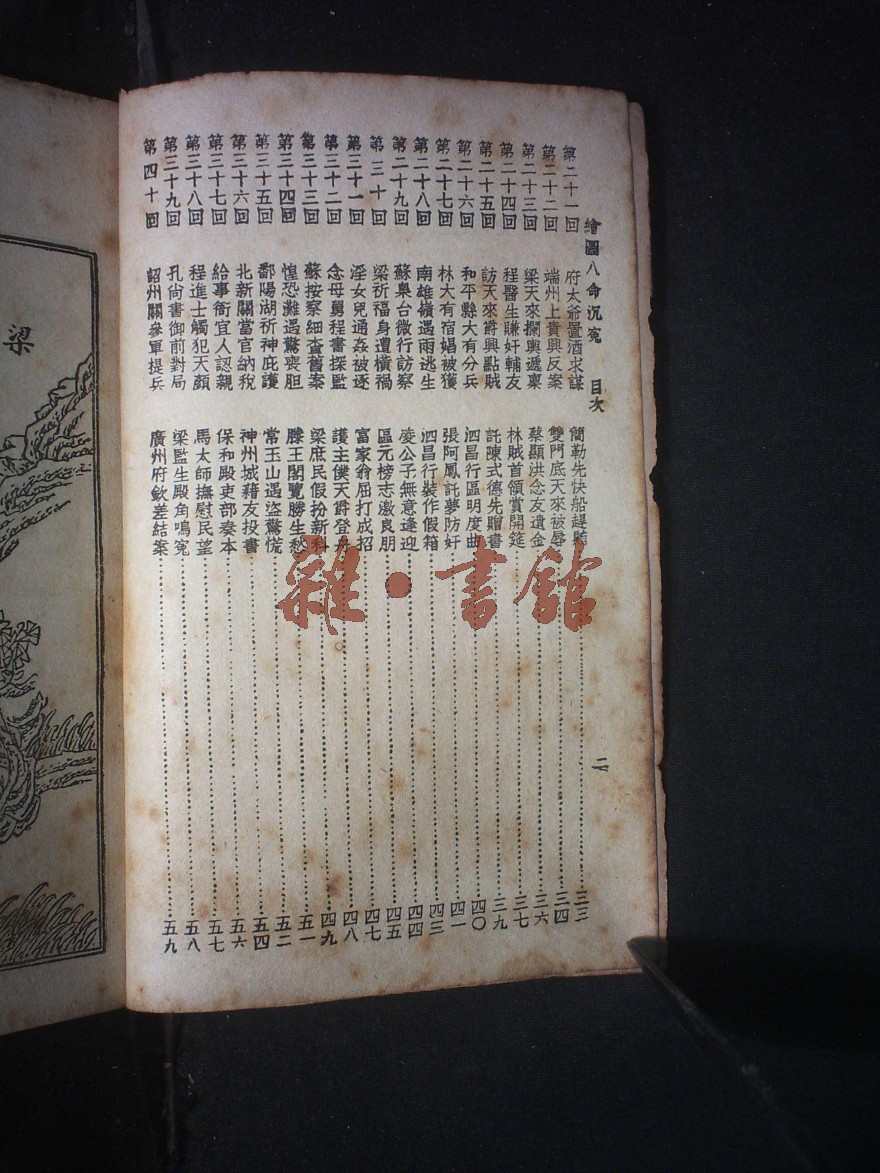 繪圖八命沉寃 目次 二
第二十一回 府太爺置酒求謀 簡勒先快船趕賍 三三
第二十二回 端州上貴興反案 雙門底天來被辱 三四
第二十三回 梁天來攔輿遞稟 蔡顯洪念友遺金 三六
第二十四回 程醫生賺奸輔友 林賊首領賞開筵 三七
第二十五回 訪天來爵興點賊 託陳式德先贈書 三九
第二十六回 和平縣大有分兵 泗昌行區明度曲 四〇
第二十七回 林大有宿娼被獲 張阿鳳託夢防奸 四一
第二十八回 南雄嶺遇雨逃生 泗昌行裝作假箱 四三
第二十九回 蘇臬台微行訪察 凌公子無意逢迎 四四
第三十回 梁祈福身遭橫禍 區元榜志激良朋 四五
第三十一回 淫女兒通姦被逐 富家翁屈打成招 四七
第三十二回 念母舅程書探監 護主僕天爵登舟 四八
第三十三回 蘇按察細查舊案 梁庶民假扮新科 四九
第三十四回 惶恐灘遇驚喪胆 滕王閣覽勝生愁 五一
第三十五回 鄱陽湖祈神庇護 常玉山遇盜驚慌 五二
第三十六回 北新關當官納稅 神州城藉友投書 五四
第三十七回 給事衙宜人認親 保和殿吏部奏本 五六
第三十八回 程進士觸犯天顏 馬太師撫慰民望 五七
第三十九回 孔尙書御前對局 梁監生殿角鳴寃 五八
第四十回 韶州關參軍提兵 廣州府欽差結案 五九
梁
雜·書館